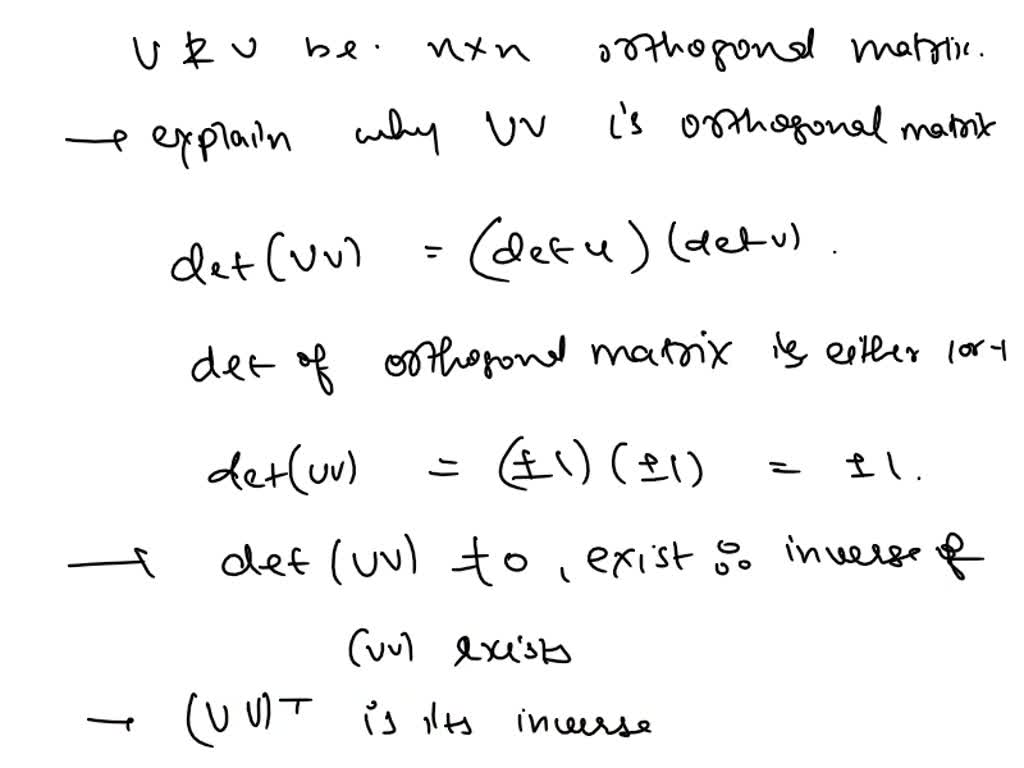 U & V be. n×n orthogonal matrix.
→ explain why UV is orthogonal matrix
det(UV) = (det u) (det v).
det of orthogonal matrix is either 1 or -1
det(UV) = (±1) (±1) = ±1.
→ det (UV) ≠ 0, exist ∴ inverse of
(UV) exists
→ (UV)ᵀ is its inverse